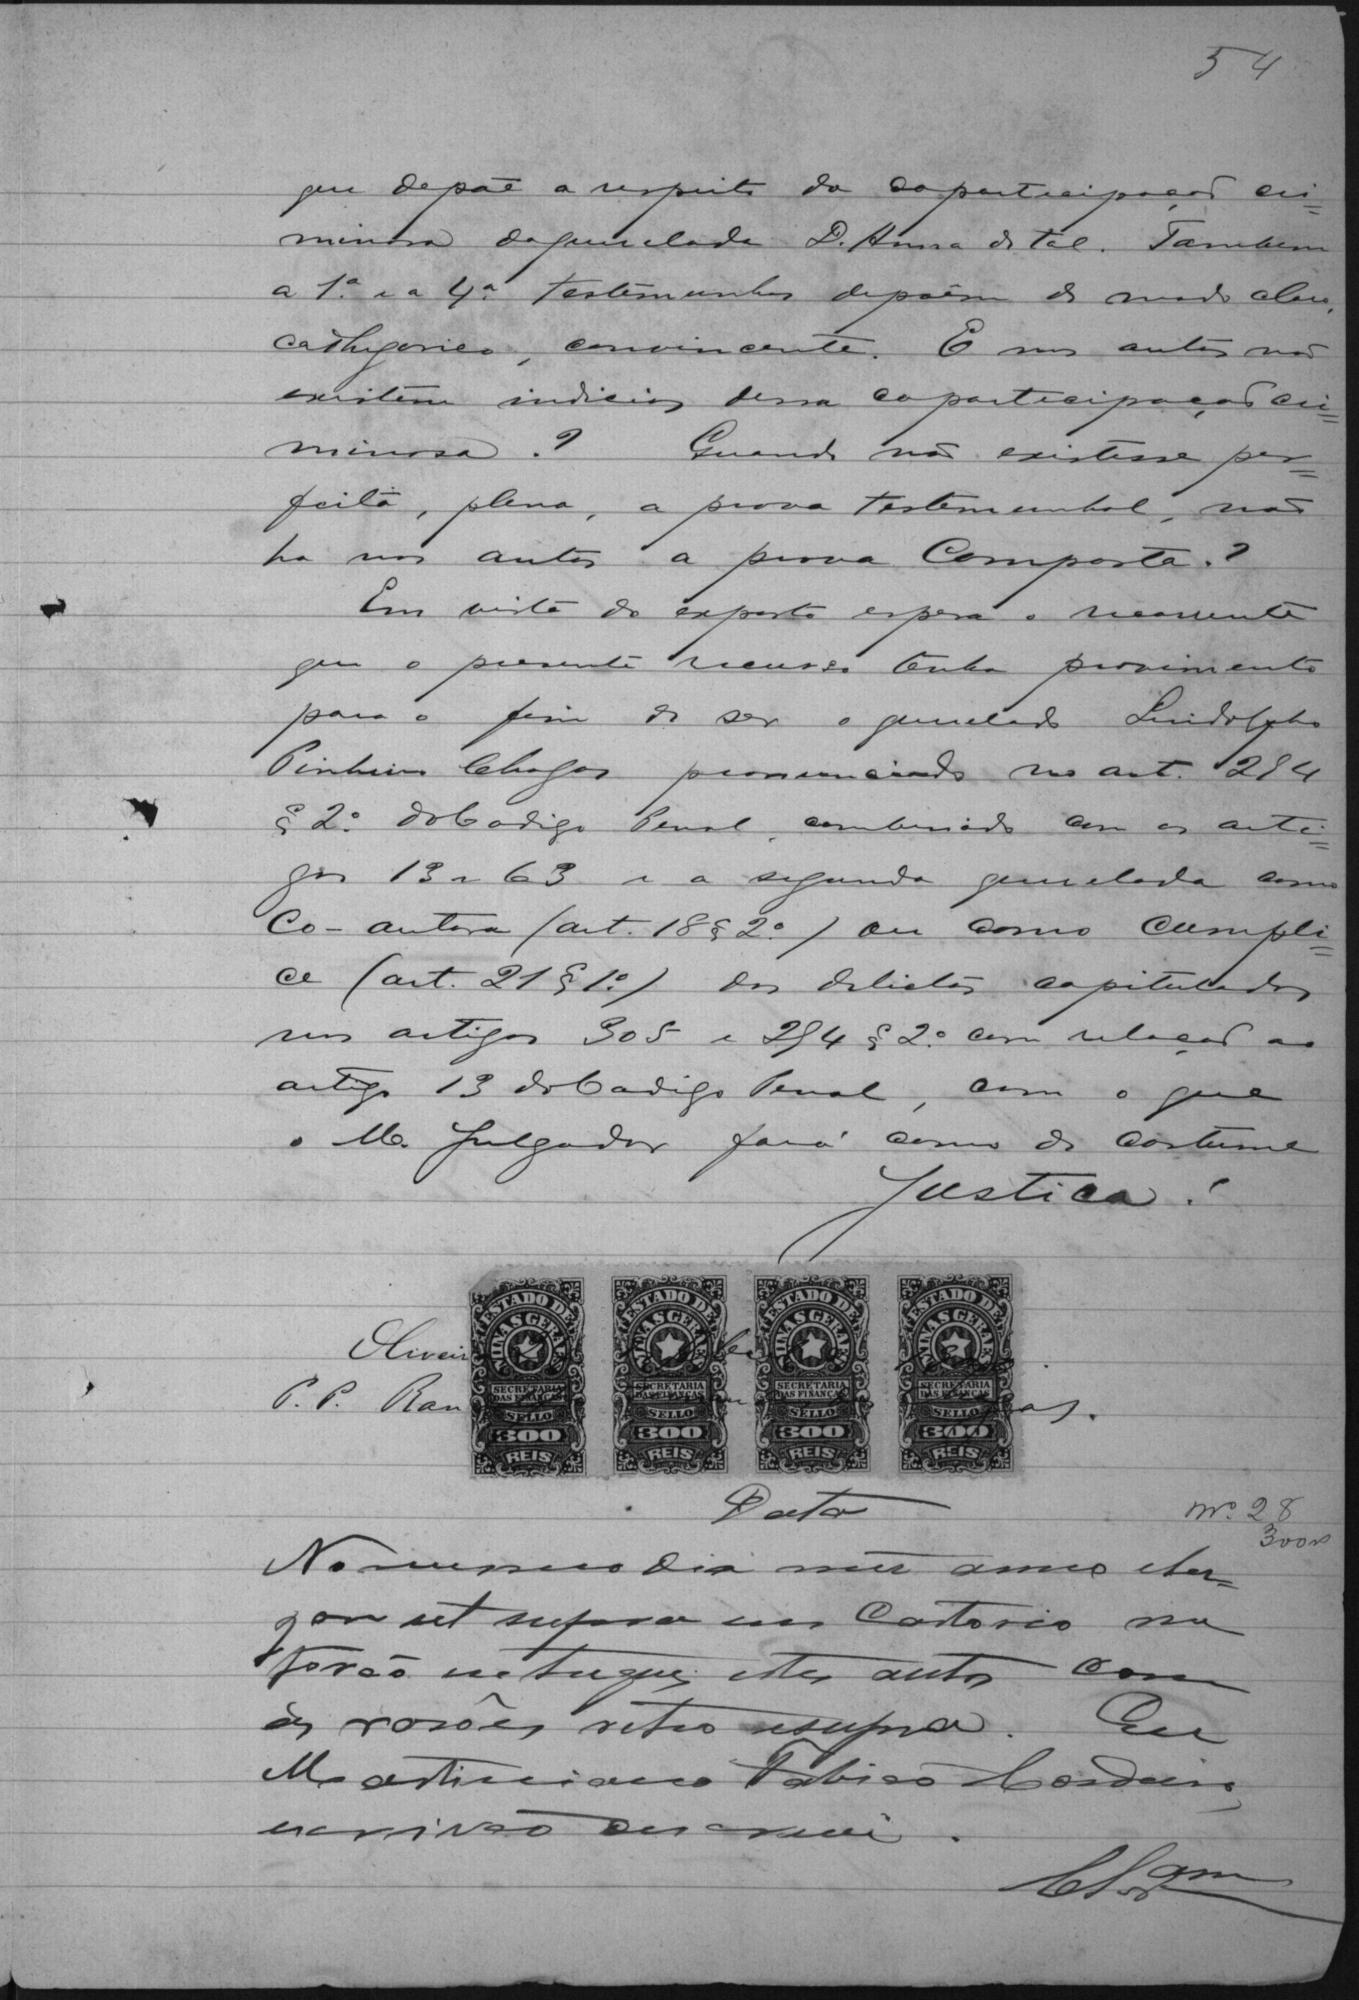 54
que depõe a respeito da coparticipação cri=
minosa daquerelada D. Anna de tal. Tambem
a 1.ª e a 4.ª testemunhas depõem de modo claro,
cathegorico, convincente. E nos autos não
existem indicios dessa coparticipação cri=
minosa? Quando não existisse per=
feita, plena, a prova testemunhal, não
ha nos autos a prova Composta?
Em vista do exposto espera o recorrente
que o presente recurso tenha provimento
para o fim de ser o querelado Lindolpho
Pinheiro Chagas pronunciado no art. 294
§ 2.º do Codigo Penal, combinado com os arti=
gos 13 e 63 e a segunda querelada como
Co-autora (art. 18 § 2.º) ou como cumpli=
ce (art. 21 § 1.º) dos delictos capitulados
nos artigos 305 e 294 § 2.º com relação ao
artigo 13 do Codigo Penal, com o que
o M. Julgador fará como de costume
Justiça!
ESTADO DE MINAS GERAES SECRETARIA DAS FINANÇAS SELLO 300 REIS
ESTADO DE MINAS GERAES SECRETARIA DAS FINANÇAS SELLO 300 REIS
ESTADO DE MINAS GERAES SECRETARIA DAS FINANÇAS SELLO 300 REIS
ESTADO DE MINAS GERAES SECRETARIA DAS FINANÇAS SELLO 300 REIS
P. P.
Data
Nº 28
300rs
No mesmo dia mes anno e lu=
gar ut supra em Cartorio me
forão entregues estes autos com
as rasões retro e supra. Eu
Martiniano Fabião Cordeiro,
escrivão o escrevi.